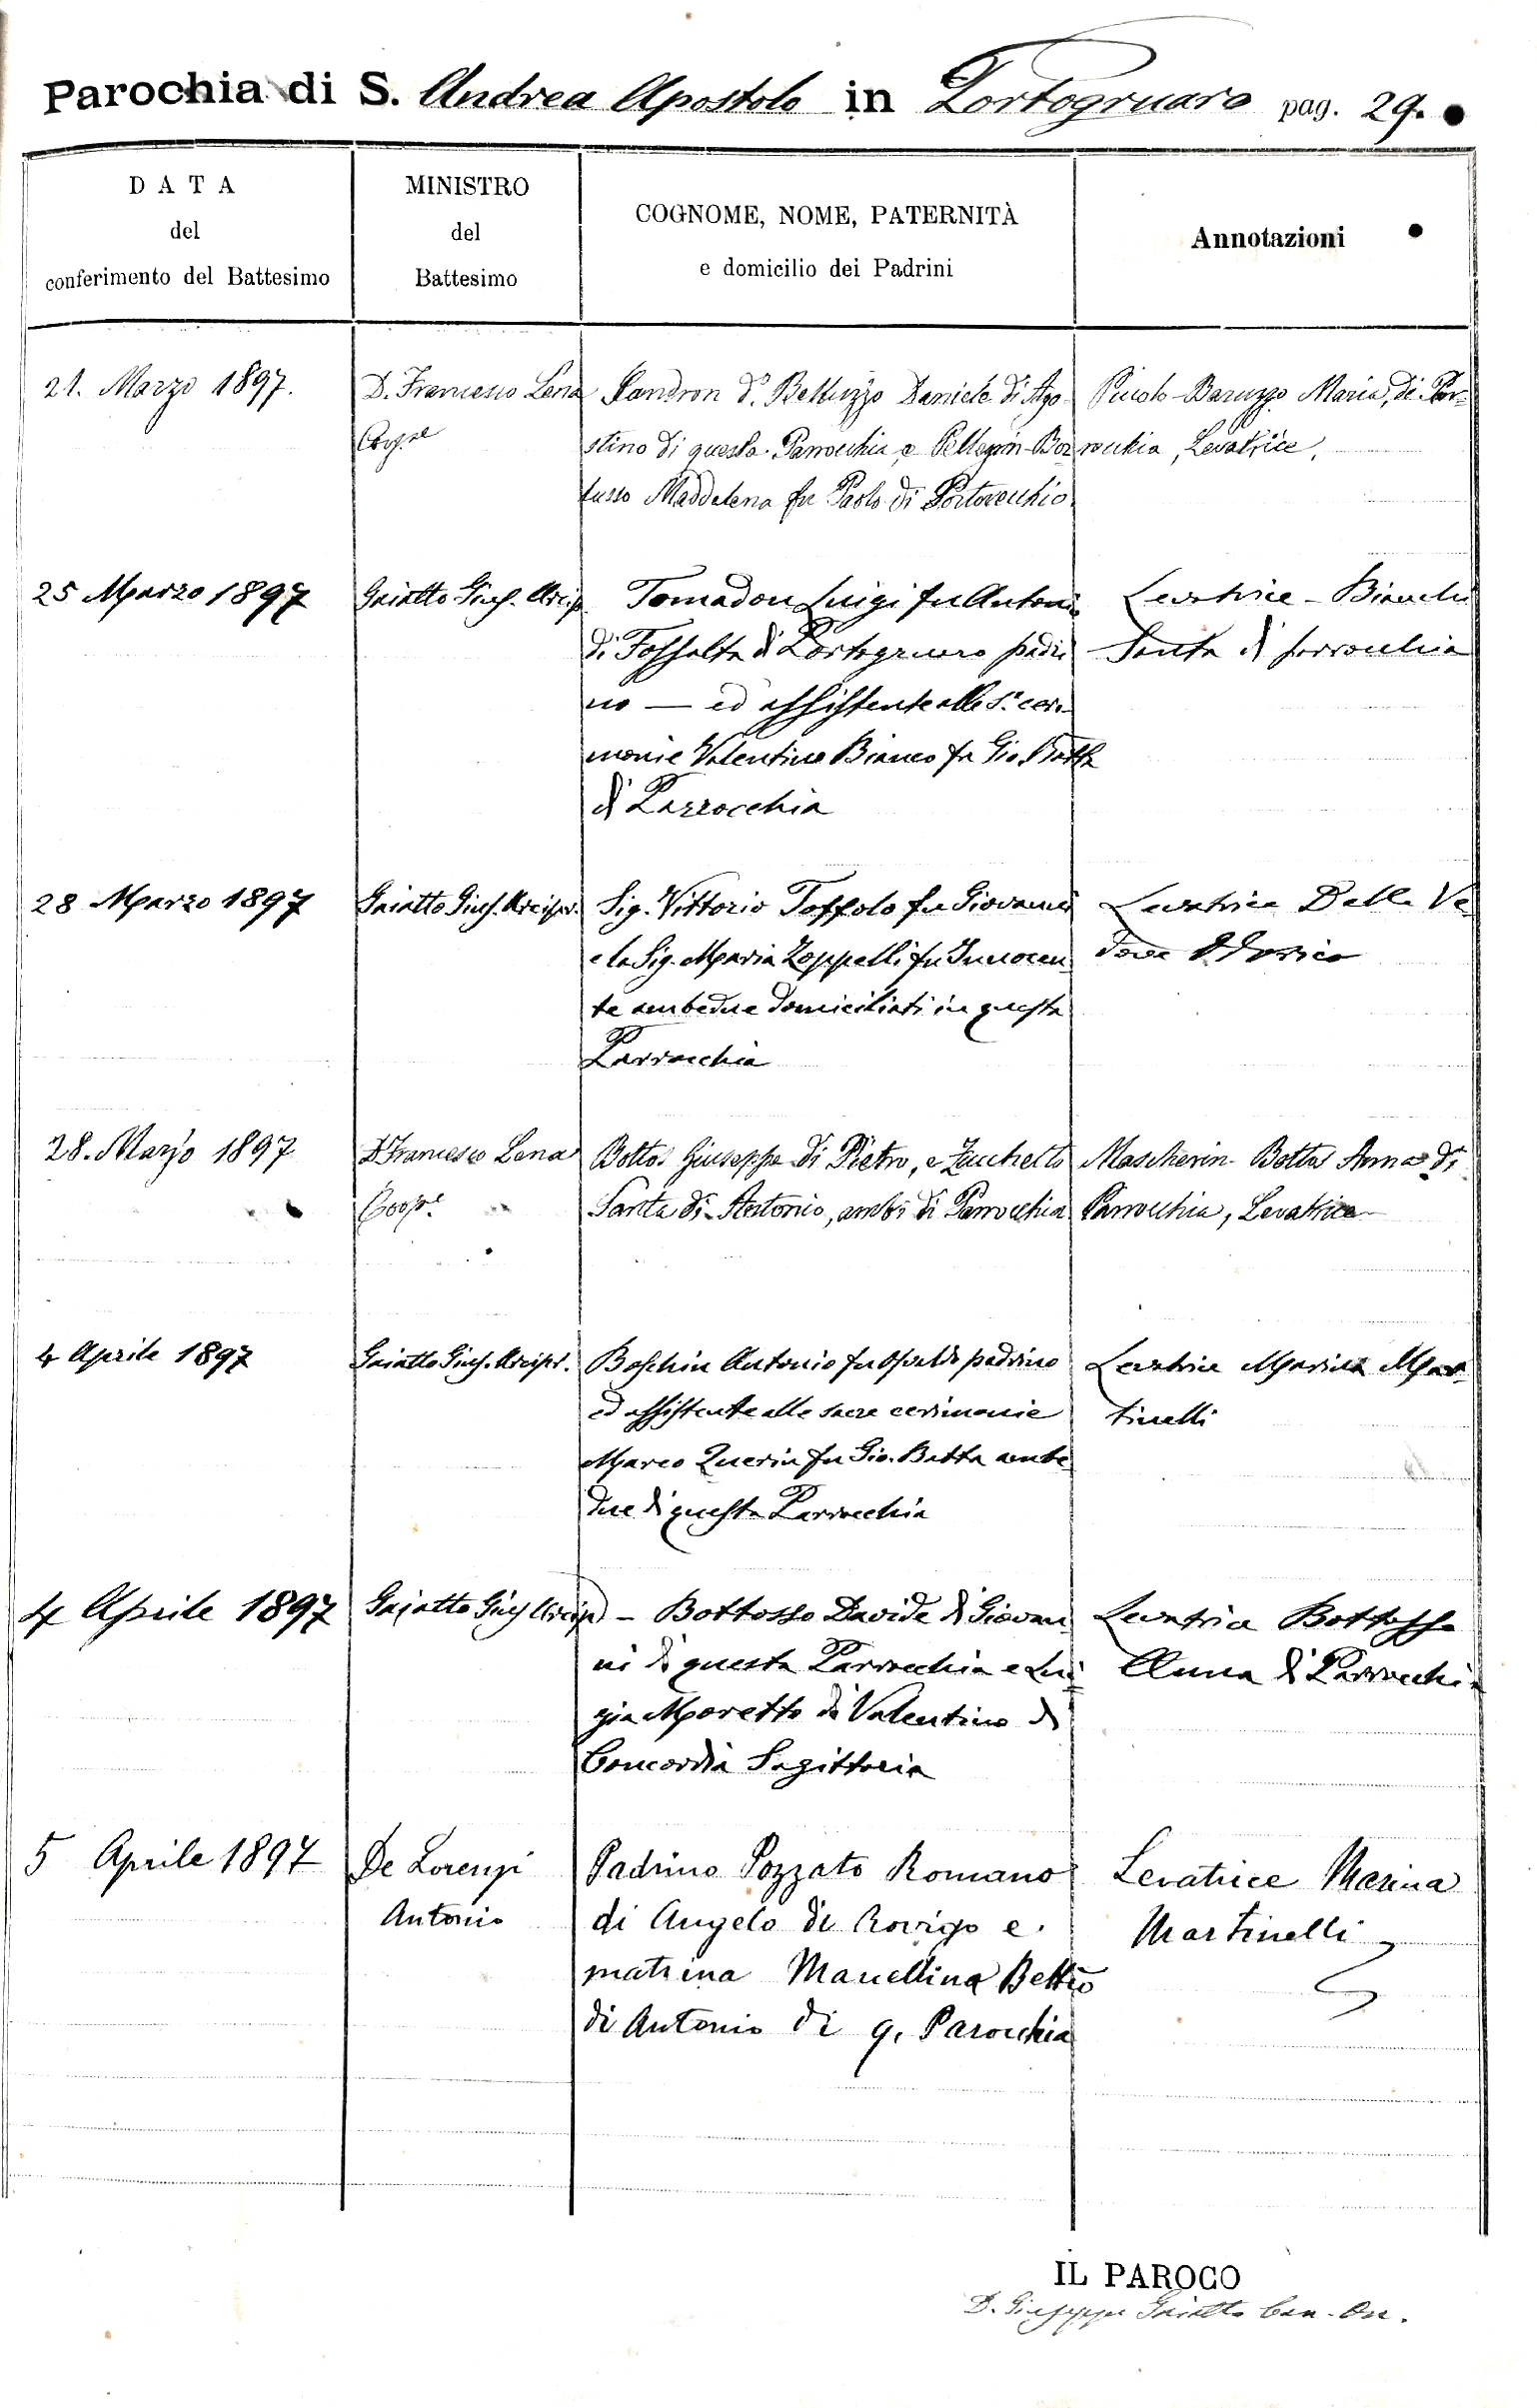 Parochia di S. Andrea Apostolo in Portogruaro pag. 29.
DATA
del
conferimento del Battesimo
MINISTRO
del
Battesimo
COGNOME, NOME, PATERNITÀ
e domicilio dei Padrini
Annotazioni
21. Marzo 1897.
D. Francesco Lena
Coop.re
Sandron d.o Belluzzo Daniele di Ago
stino di questa Parrocchia, e Pellegrin-Bot
tusso Maddalena fu Paolo di Portovecchio
Maria, di Par-
rocchia, Levatrice.
25 Marzo 1897
Gaiatto Gius. Arcip
Tomadon Luigi fu Antonio
di Fossalta di Portogruaro padri
no — ed assistente alle S.e ceri
monie Valentino Bianco fu Gio Batta
di Parrocchia
Levatrice - Bianchi
Santa di parrocchia
28 Marzo 1897
Gaiatto Gius. Arcipr.
Sig. Vittorio Toffolo fu Giovanni
e la Sig. Maria Zoppelli fu Innocen
te ambedue domiciliati in questa
Parrocchia
Levatrice Dalla Ve
dova
28. Marzo 1897
D Francesco Lena
Coop.e
Bottos Giuseppe di Pietro, e Zucchetto
Santa di Antonio, ambi di Parrocchia
Mascherin-Bottos Anna di
Parrocchia, Levatrice
4 Aprile 1897
Gaiatto Gius. Arcipr.
Boschin Antonio fu Osvaldo padrino
ed assistente alle sacre cerimonie
Marco Querin fu Gio. Batta ambe
due di questa Parrocchia
Levatrice Marina Mar
tinelli
4 Aprile 1897
Gajatto Gius Arcip
- Bottosso Davide di Giovan
ni di questa Parrocchia e Lui
gia Moretto di Valentino di
Concordia Sagittaria
Levatrice Bottosso
Anna di Parrocchia
5 Aprile 1897
De Lorenzi
Antonio
Padrino Pozzato Romano
di Angelo di Rovigo e
matrina Marcellina Bettio
di Antonio di q. Parocchia
Levatrice Marina
Martinelli
IL PAROCO
D. Giuseppe Gaiatto Can. On.